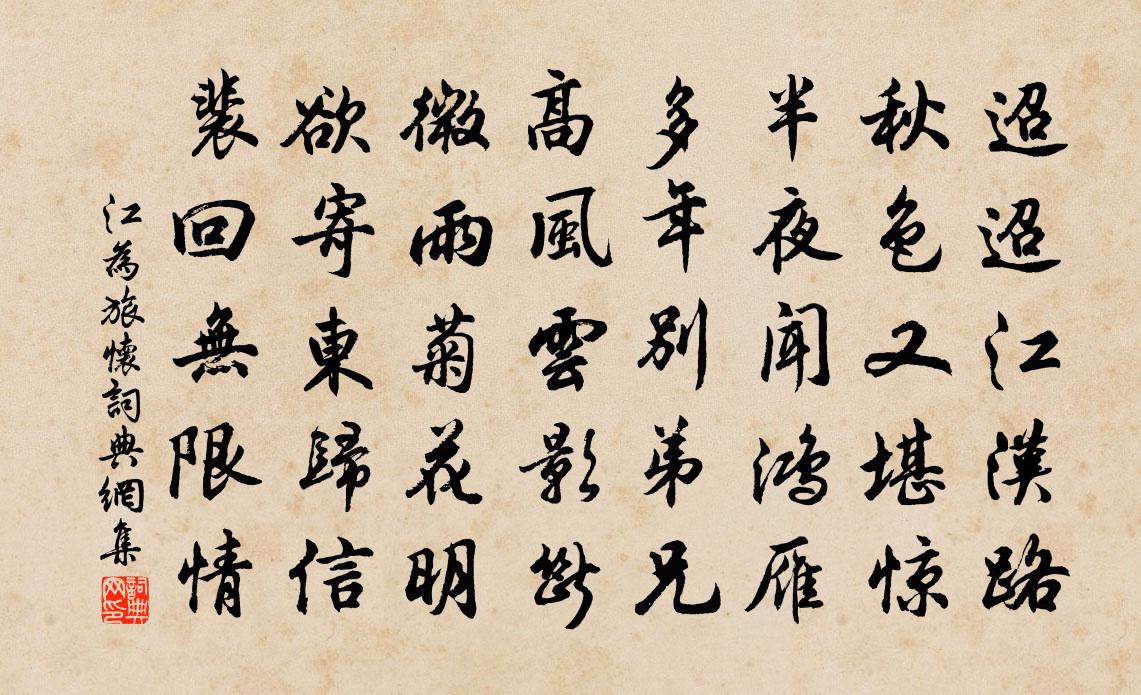 迢迢江漢路
秋色又堪惊
半夜闻鸿雁
多年别弟兄
高風雲影斷
微雨菊花明
欲寄東歸信
裴回無限情
江為旅懷詞典網集
詞典网印